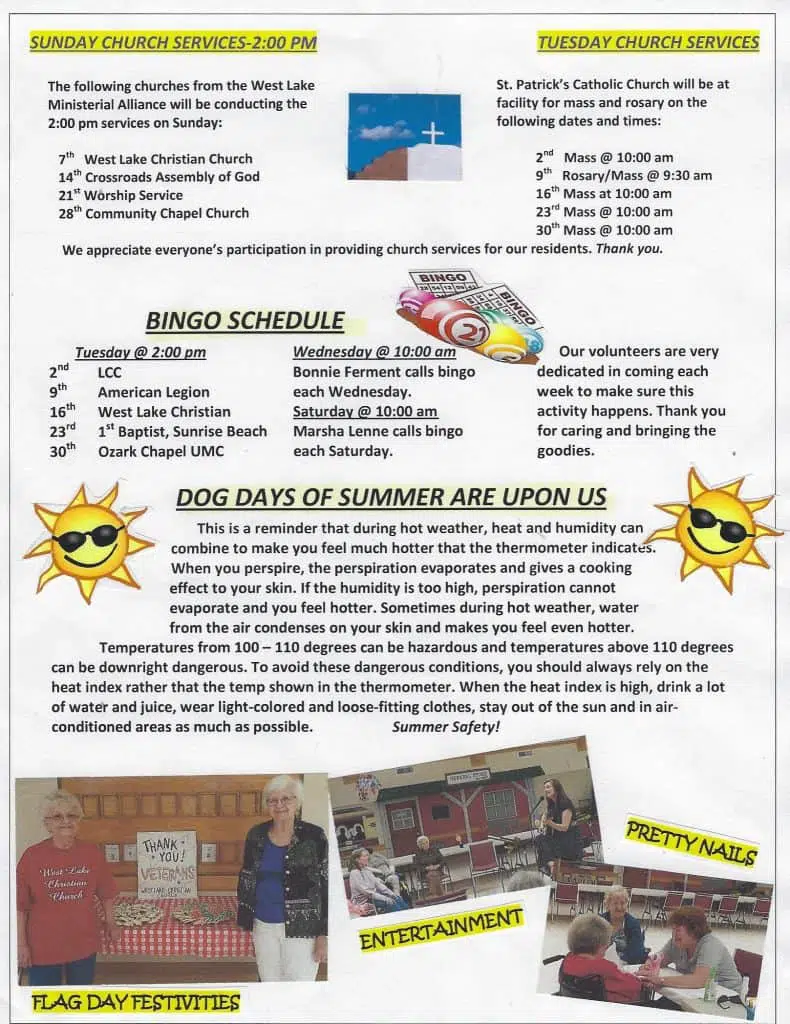 SUNDAY CHURCH SERVICES-2:00 PM
TUESDAY CHURCH SERVICES
The following churches from the West Lake
Ministerial Alliance will be conducting the
2:00 pm services on Sunday:
7th West Lake Christian Church
14th Crossroads Assembly of God
21st Worship Service
28th Community Chapel Church
St. Patrick's Catholic Church will be at
facility for mass and rosary on the
following dates and times:
2nd Mass @ 10:00 am
9th Rosary/Mass @ 9:30 am
16th Mass at 10:00 am
23rd Mass @ 10:00 am
30th Mass @ 10:00 am
We appreciate everyone's participation in providing church services for our residents. Thank you.
BINGO
BINGO
21
BINGO SCHEDULE
Tuesday @ 2:00 pm
2nd LCC
9th American Legion
16th West Lake Christian
23rd 1st Baptist, Sunrise Beach
30th Ozark Chapel UMC
Wednesday @ 10:00 am
Bonnie Ferment calls bingo
each Wednesday.
Saturday @ 10:00 am
Marsha Lenne calls bingo
each Saturday.
Our volunteers are very
dedicated in coming each
week to make sure this
activity happens. Thank you
for caring and bringing the
goodies.
DOG DAYS OF SUMMER ARE UPON US
This is a reminder that during hot weather, heat and humidity can
combine to make you feel much hotter that the thermometer indicates.
When you perspire, the perspiration evaporates and gives a cooking
effect to your skin. If the humidity is too high, perspiration cannot
evaporate and you feel hotter. Sometimes during hot weather, water
from the air condenses on your skin and makes you feel even hotter.
Temperatures from 100 – 110 degrees can be hazardous and temperatures above 110 degrees
can be downright dangerous. To avoid these dangerous conditions, you should always rely on the
heat index rather that the temp shown in the thermometer. When the heat index is high, drink a lot
of water and juice, wear light-colored and loose-fitting clothes, stay out of the sun and in air-
conditioned areas as much as possible. Summer Safety!
West Lake
Christian
Church
THANK
YOU!
VETERANS
WEST LAKE CHRISTIAN
FLAG DAY FESTIVITIES
ENTERTAINMENT
PRETTY NAILS